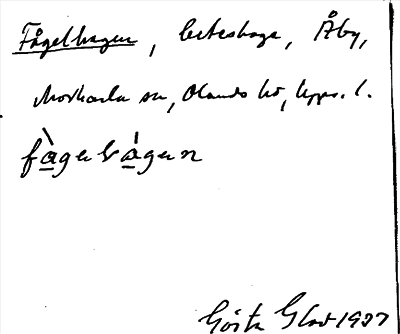 Fågelhagen, beteshage, Åby,
Morkarla sn, Olands hd, Upps. l.
fàgelhágen
Gösta Glad 1937